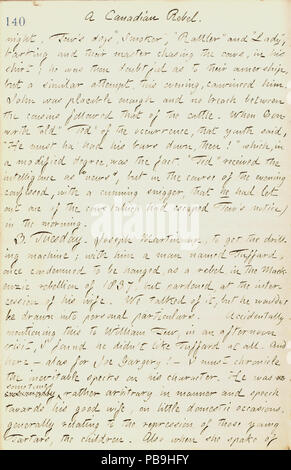 140
A Canadian Rebel.
night, Tew's dogs, "Smoker," "Rattler" and "Lady,"
barking and their master chasing the cows, in his
shirt; he was then doubtful as to their ownership,
but a similar attempt, this evening, convinced him.
John was placable enough and no breach between
the cousins followed that of the cattle. When Con-
worth told "Ted" of the occurrence, that youth said,
"He must ha' had his bars down, then!" which, in
a modified degree, was the fact. "Ted" received the
intelligence as "news", but in the course of the evening
confessed, with a cunning snigger, that he had let
out one of the cows (which had escaped Tew's notice)
in the morning.
3. Tuesday. Joseph Martin up, to get the drill-
ing machine; with him a man named Tuffard,
once condemned to be hanged as a rebel in the Mack-
enzie rebellion of 1837, but pardoned at the inter-
cession of his wife. We talked of it, but he wouldn't
be drawn into personal particulars. Accidentally
mentioning this to William Tew, in an afternoon
visit, I found he didn't like Tuffard at all. And
here - alas for Joe Gargery! - I must chronicle
the inevitable specks on his character. He was
sometimes
rather arbitrary in manner and speech
towards his good wife, on little domestic occasions,
generally relating to the repression of those young
Tartars, the children. Also when she spoke of
alamy
Image ID: PB9HFY
www.alamy.com